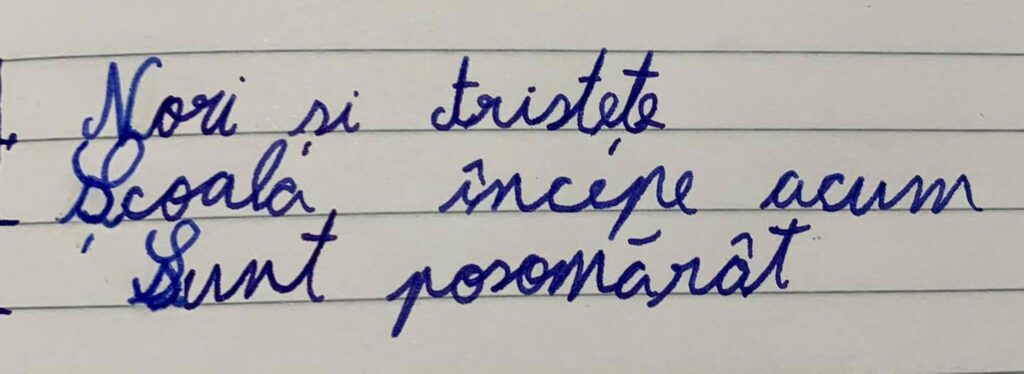 Nori si tristete
Școală, începe acum
Sunt posomărât